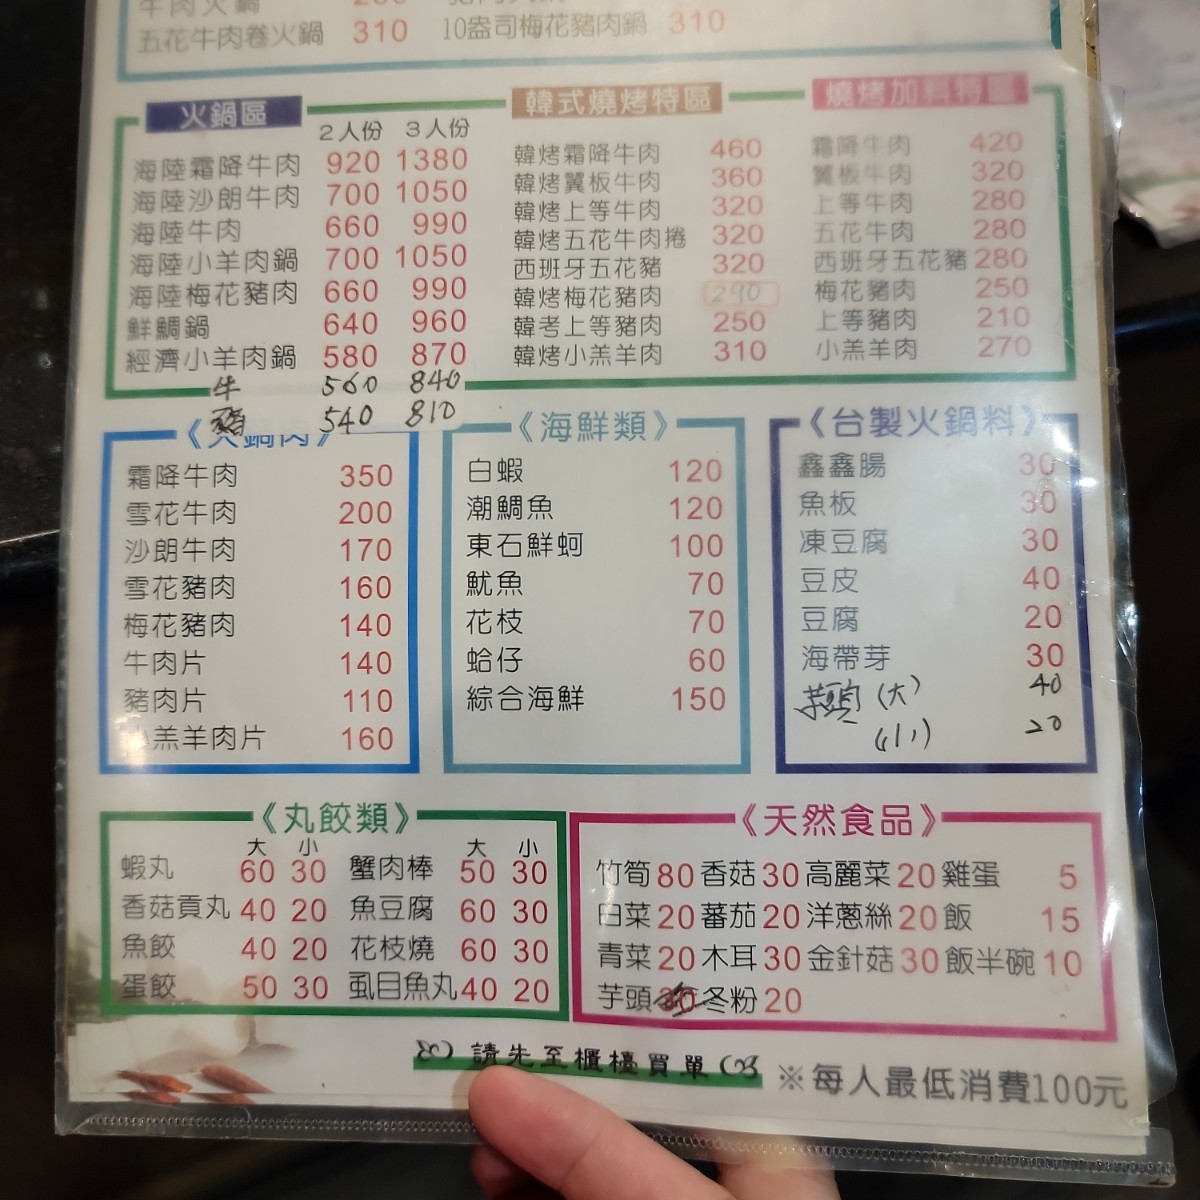 五花牛肉卷火鍋 310 10盎司梅花豬肉鍋 310
火鍋區
2人份 3人份
海陸霜降牛肉 920 1380
海陸沙朗牛肉 700 1050
海陸牛肉 660 990
海陸小羊肉鍋 700 1050
海陸梅花豬肉 660 990
鮮鯛鍋 640 960
經濟小羊肉鍋 580 870
牛 560 840
豬 540 810
韓式燒烤特區
韓烤霜降牛肉 460
韓烤翼板牛肉 360
韓烤上等牛肉 320
韓烤五花牛肉捲 320
西班牙五花豬 320
韓烤梅花豬肉 290
韓老上等豬肉 250
韓烤小羔羊肉 310
燒烤加料特區
霜降牛肉 420
翼板牛肉 320
上等牛肉 280
五花牛肉 280
西班牙五花豬 280
梅花豬肉 250
上等豬肉 210
小羔羊肉 270
《火鍋肉》
霜降牛肉 350
雪花牛肉 200
沙朗牛肉 170
雪花豬肉 160
梅花豬肉 140
牛肉片 140
豬肉片 110
小羔羊肉片 160
《海鮮類》
白蝦 120
潮鯛魚 120
東石鮮蚵 100
魷魚 70
花枝 70
蛤仔 60
綜合海鮮 150
《台製火鍋料》
鑫鑫腸 30
魚板 30
凍豆腐 30
豆皮 40
豆腐 20
海帶芽 30
芋頭(大) 40
(小) 20
《丸餃類》
大 小 大 小
蝦丸 60 30 蟹肉棒 50 30
香菇貢丸 40 20 魚豆腐 60 30
魚餃 40 20 花枝燒 60 30
蛋餃 50 30 虱目魚丸 40 20
《天然食品》
竹筍 80 香菇 30 高麗菜 20 雞蛋 5
白菜 20 蕃茄 20 洋蔥絲 20 飯 15
青菜 20 木耳 30 金針菇 30 飯半碗 10
芋頭 30 冬粉 20
請先至櫃檯買單
※每人最低消費100元